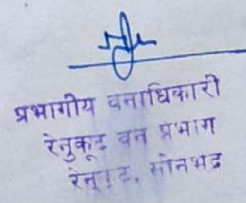 प्रभागीय वनाधिकारी
रेनुकूट वन प्रभाग
रेनूकूट, सोनभद्र